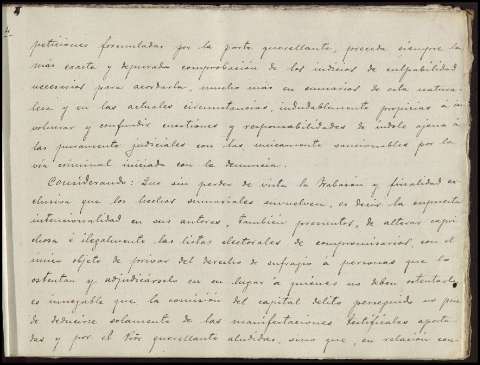 peticiones formuladas por la parte querellante, proceda siempre la
más exacta y depurada comprobación de los indicios de culpabilidad
necesarios para acordarla, mucho más en sumarios de esta natura-
leza y en las actuales circunstancias, indudablemente propicias á in-
volucrar y confundir cuestiones y responsabilidades de índole ajena á
las puramente judiciales con las únicamente sancionables por la
vía criminal iniciada con la denuncia.
Considerando: Que sin perder de vista la trabazón y finalidad ex-
clusiva que los hechos sumariales envuelven, es decir la supuesta
intencionalidad en sus autores, también presuntos, de alterar capri-
chosa é ilegalmente las listas electorales de compromisarios, con el
único objeto de privar del derecho de sufragio a personas que lo
ostentan y adjudicárselo en su lugar á quienes no deben ostentarlo,
es innegable que la comisión del capital delito perseguido no pue-
de deducirse solamente de las manifestaciones testificales aporta-
das y por el querellante aludidas, sino que, en relación con